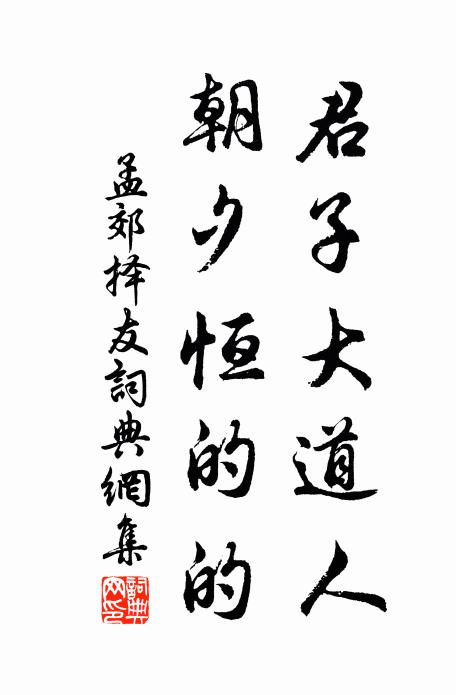 君子大道人
朝夕恒的的
孟郊择友詞典網集
詞典网印